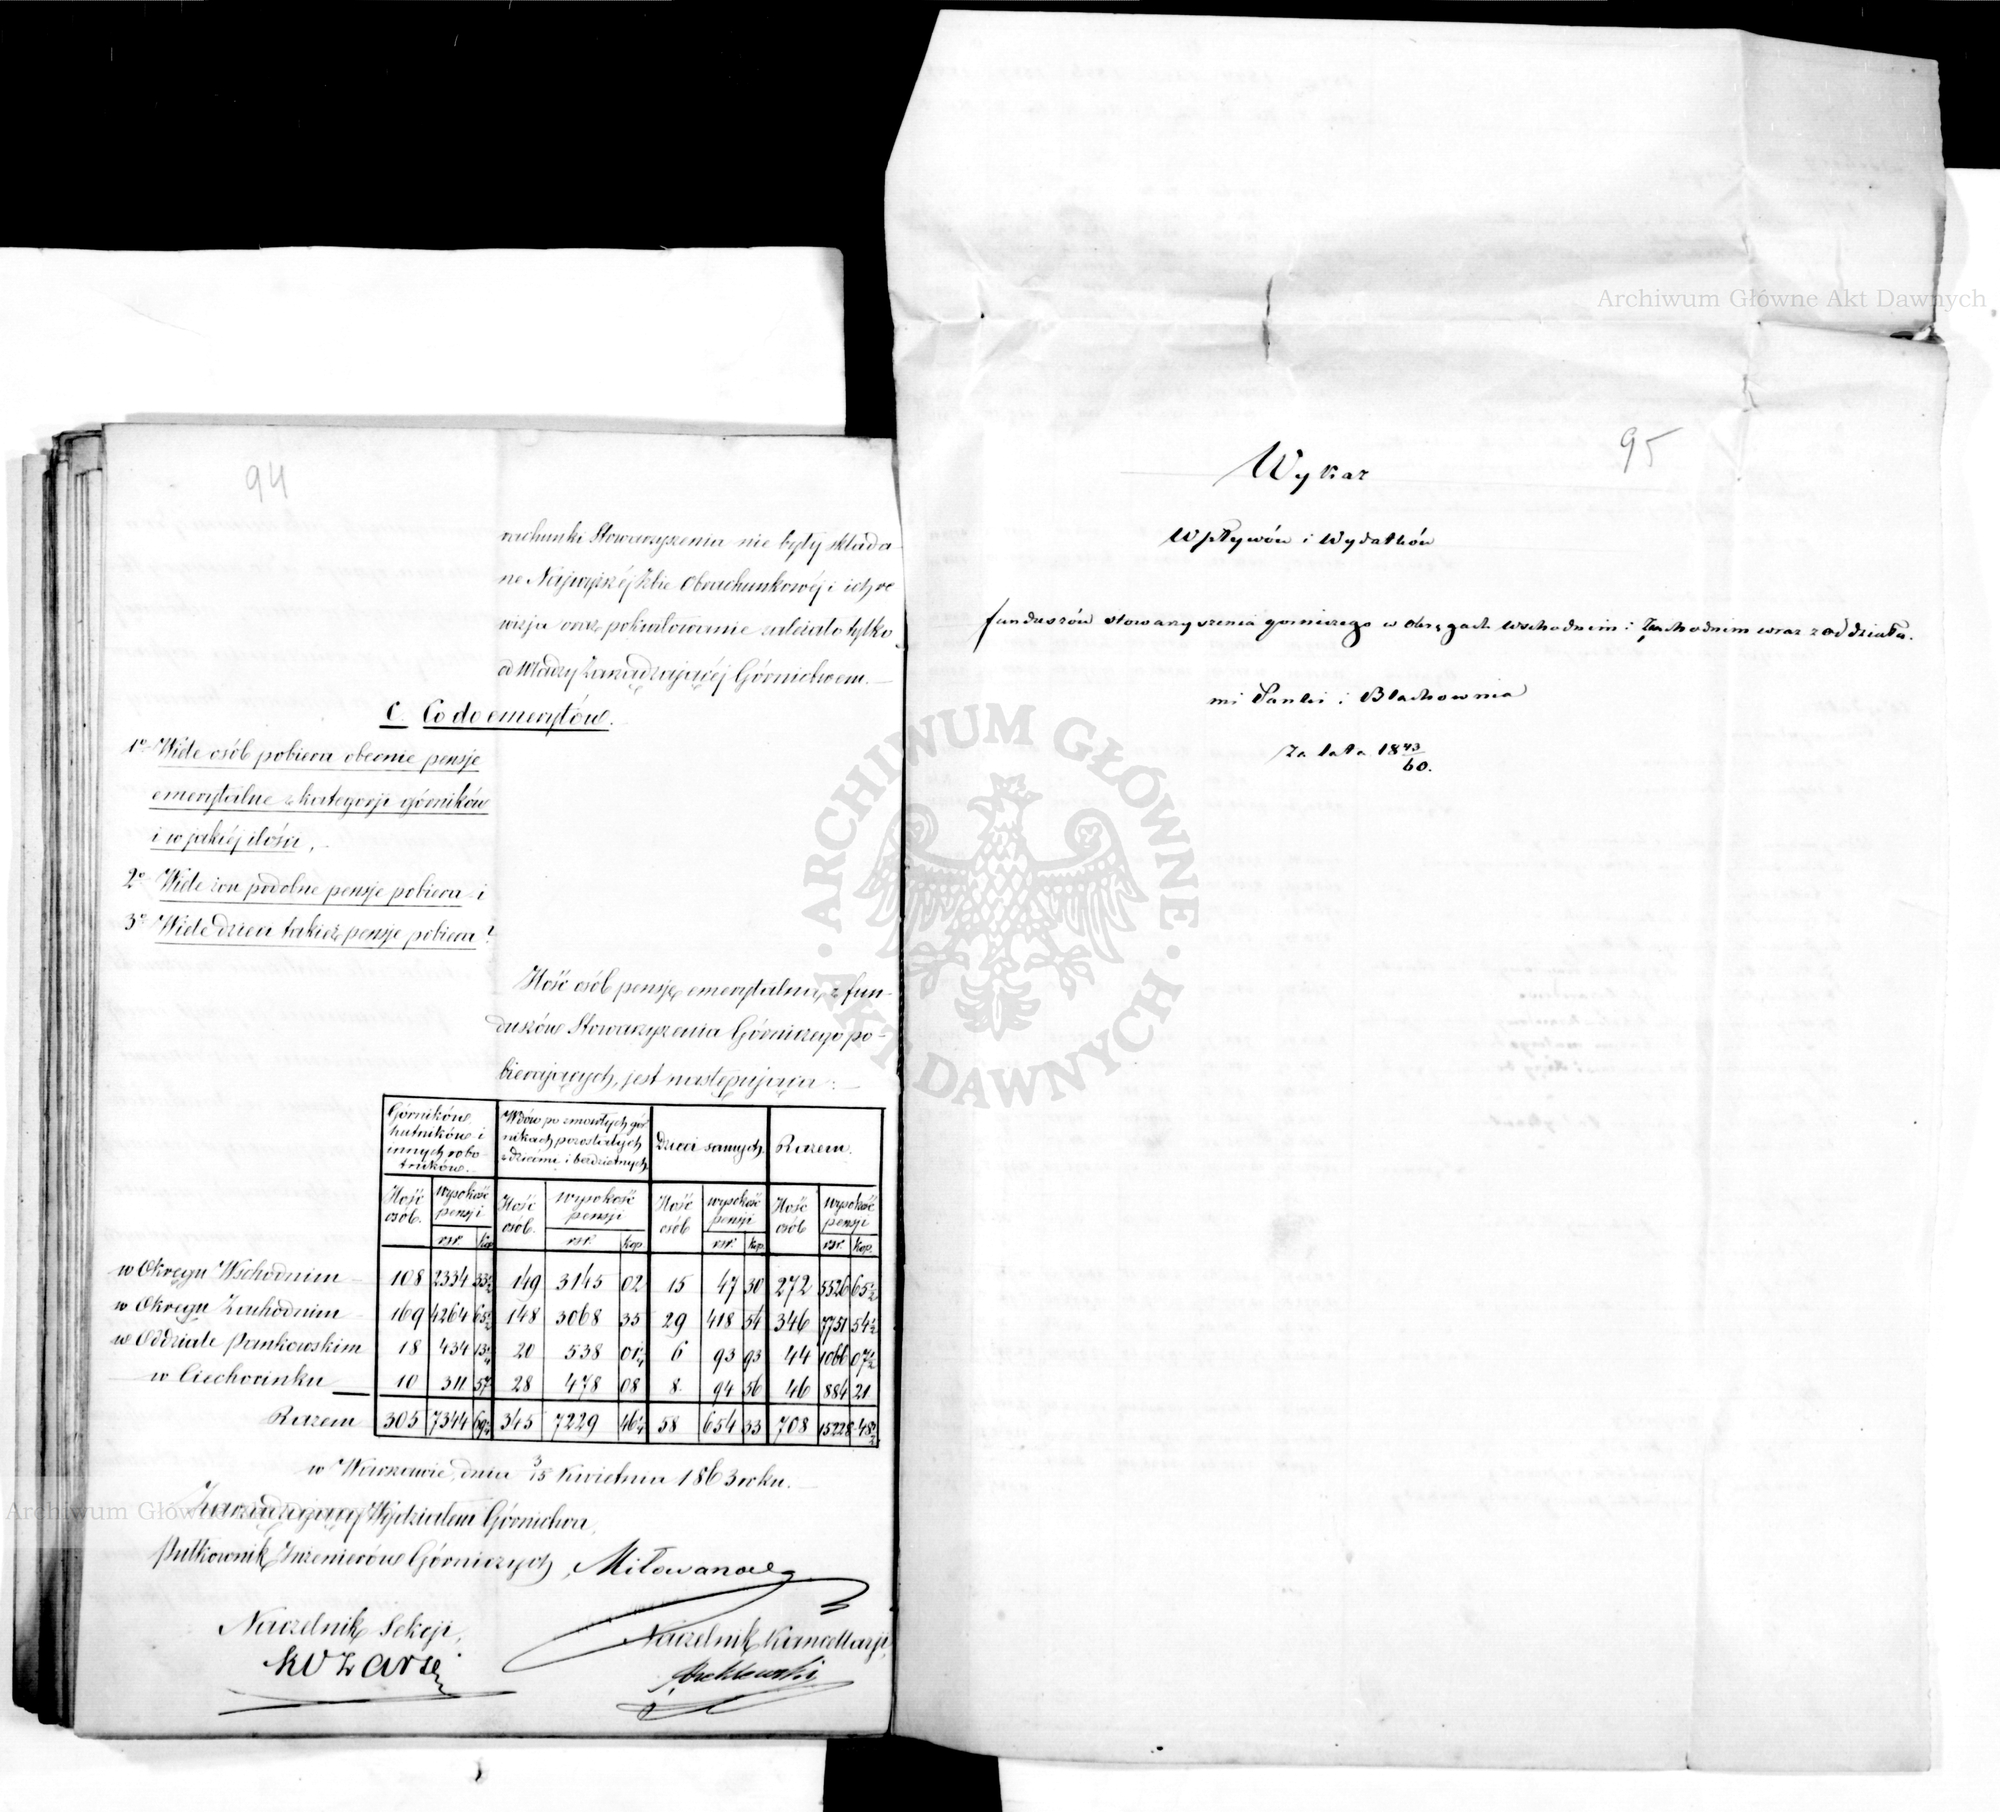 94
rachunki Stowarzyszenia nie były składa-
ne Najwyższéj Izbie Obrachunkowéj i ich re
wizja oraz pokwitowanie zależało tylko
od Władzy Zarządzającéj Górnictwem.
C. Co do emerytów.
1o Wiele osób pobiera obecnie pensje
emerytalne z kategorji górników
i w jakiéj ilości,
2o Wiele żon podobne pensje pobiera i
3o Wiele dzieci takież pensje pobiera?
Ilość osób pensję emerytalną z fun-
duszów Stowarzyszenia Górniczego po-
bierających, jest następująca:
Górników hutników i innych robotników. Wdów po zmarłych górnikach pozostałych z dziećmi i bezdzietnych Dzieci samych. Razem.
Ilość osób. wysokość pensji Ilość osób. wysokość pensji Ilość osób wysokość pensji Ilość osób wysokość pensji
rsr. kop. rsr. kop. rsr. kop. rsr. kop.
w Okręgu Wschodnim 108 2334 33½ 149 3145 02 15 47 30 272 5526 65½
w Okręgu Zachodnim 169 4264 65½ 148 3068 35 29 418 54 346 7751 54½
w Oddziale Pankowskim 18 434 13¼ 20 538 01¼ 6 93 93 44 1066 07½
w Ciechocinku 10 311 57 28 478 08 8 94 56 46 884 21
Razem 305 7344 69¼ 345 7229 46¼ 58 654 33 708 15228 48½
w Warszawie, dnia 3/15 Kwietnia 1863 roku.
Zarządzający Wydziałem Górnictwa,
Pułkownik Inżenierów Górniczych,
Naczelnik Sekcji,
Naczelnik Kancellarji,
95
Wykaz
Wpływów i Wydatków
funduszów stowarzyszenia górniczego w Okręgach Wschodnim i Zachodnim wraz z oddziała.
mi Panki i Blachownia
Za lata 1843/60.
Archiwum Główne Akt Dawnych
ARCHIWUM GŁÓWNE AKT DAWNYCH
Archiwum Główne Akt Dawnych